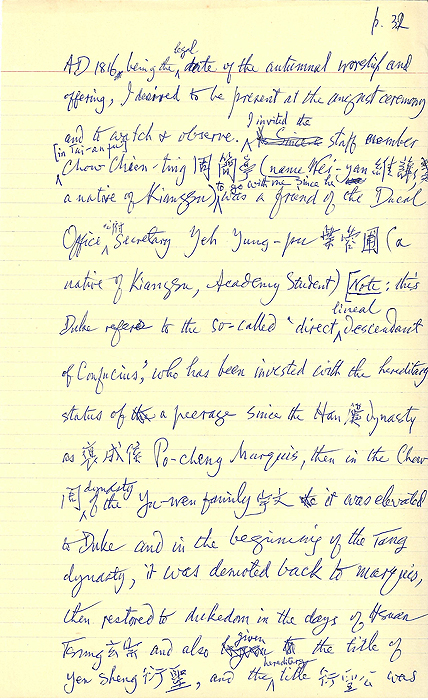 p. 32
legal
AD 1816, being the date of the autumnal worship and
offering, I desired to be present at the august ceremony
I invited the
and to watch & observe. staff member
[in Tai-an-fu]
Chow Chien-ting 周 (name Wei-yan 維
to go with me since he
a native of Kiangsu) was a friend of the Ducal
Office Secretary Yeh Yung-pu 葉 圃 (a
native of Kiangsu, Academy Student) [Note: this
lineal
Duke refers to the so-called "direct descendant
of Confucius," who has been invested with the hereditary
status of a peerage since the Han 漢 dynasty
as 褒成侯 Po-cheng Marquis, then in the Chow
dynasty
周 of the Yu-wen family 宇文 it was elevated
to Duke and in the beginning of the Tang
dynasty, it was demoted back to marquis,
then restored to dukedom in the days of Hsuan
given
Tsung 玄宗 and also the title of
hereditary
Yen Sheng 衍聖, and the title 衍聖公 was